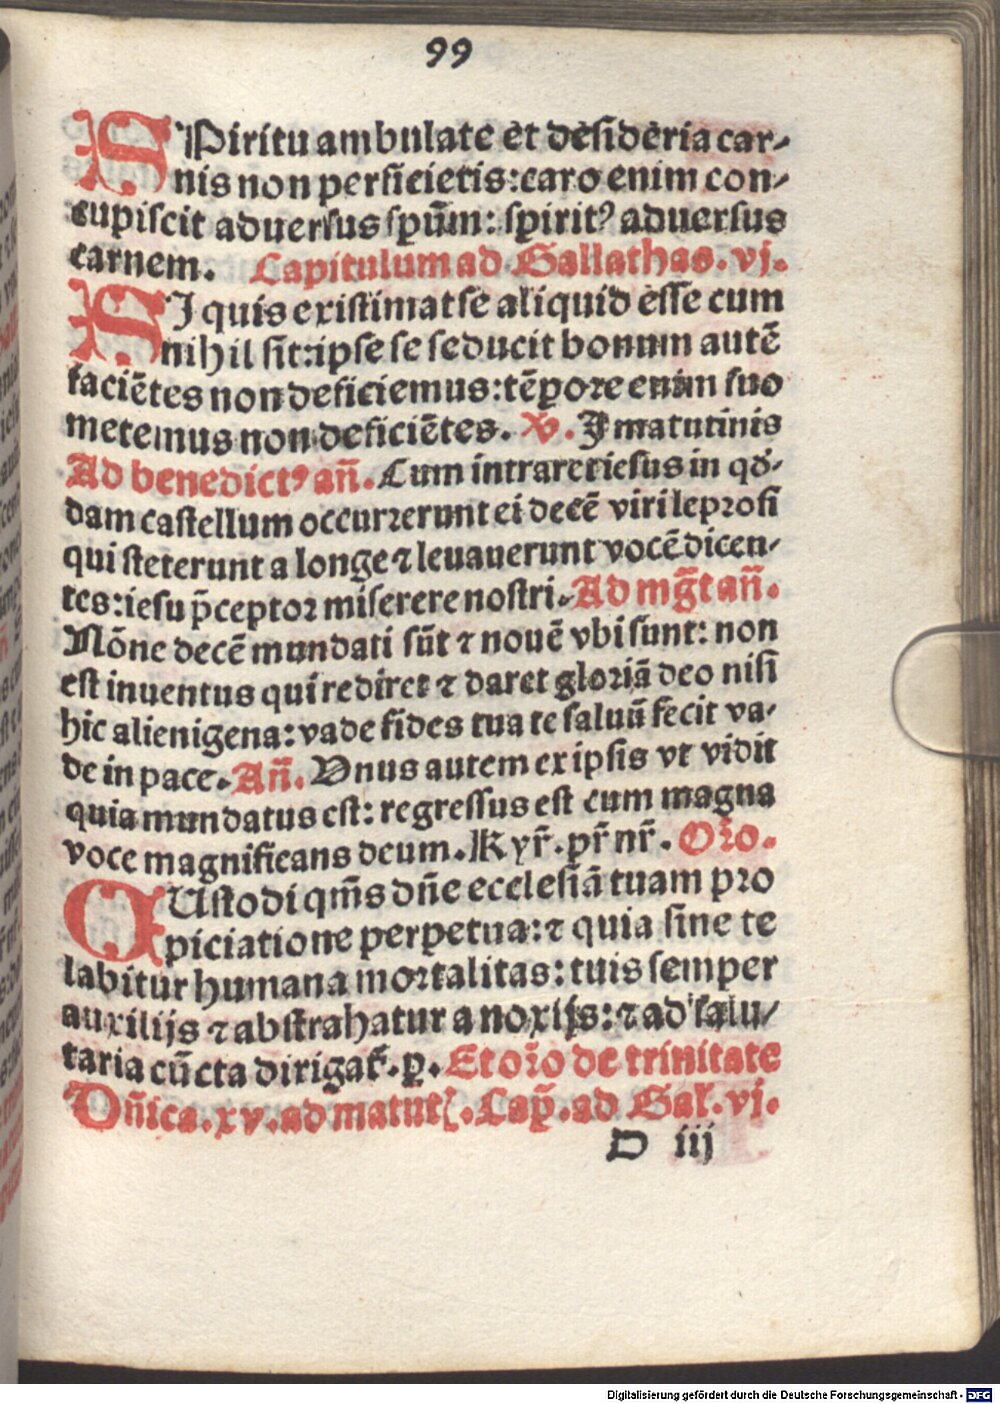 99
SPiritu ambulate et desideria car-
nis non perficietis: caro enim con-
cupiscit adversus spūm: spirit⁹ adversus
carnem. Capitulum ad Gallathas. vj.
SI quis existimat se aliquid esse cum
nihil sit: ipse se seducit bonum autē
faciētes non deficiemus: tēpore enim suo
metemus non deficiētes. xv. I matutinis
Ad benedict⁹ añ. Cum intraret iesus in qď-
dam castellum occurrerunt ei decē viri leprosi
qui steterunt a longe ⁊ leuauerunt vocē dicen-
tes: iesu p̄ceptor miserere nostri. Ad mg̃t añ.
Nōne decē mundati sūt ⁊ nouē vbi sunt: non
est inuentus qui rediret ⁊ daret gloriā deo nisi
hic alienigena: vade fides tua te saluū fecit va-
de in pace. Añ. Vnus autem ex ipsis vt vidit
quia mundatus est: regressus est cum magna
voce magnificans deum. Kyr̃. pr̃ nr̃. Or̃o.
CUstodi qm̃s dñe ecclesiā tuam pro
piciatione perpetua: ⁊ quia sine te
labitur humana mortalitas: tuis semper
auxilijs ⁊ abstrahatur a noxijs: ⁊ ad salu-
taria cūcta dirigat̃. p̲. Et or̃o de trinitate
Dñica. xv. ad matutꝭ. Cap̃. ad Gal̃. vj.
D iij
Digitalisierung gefördert durch die Deutsche Forschungsgemeinschaft - DFG